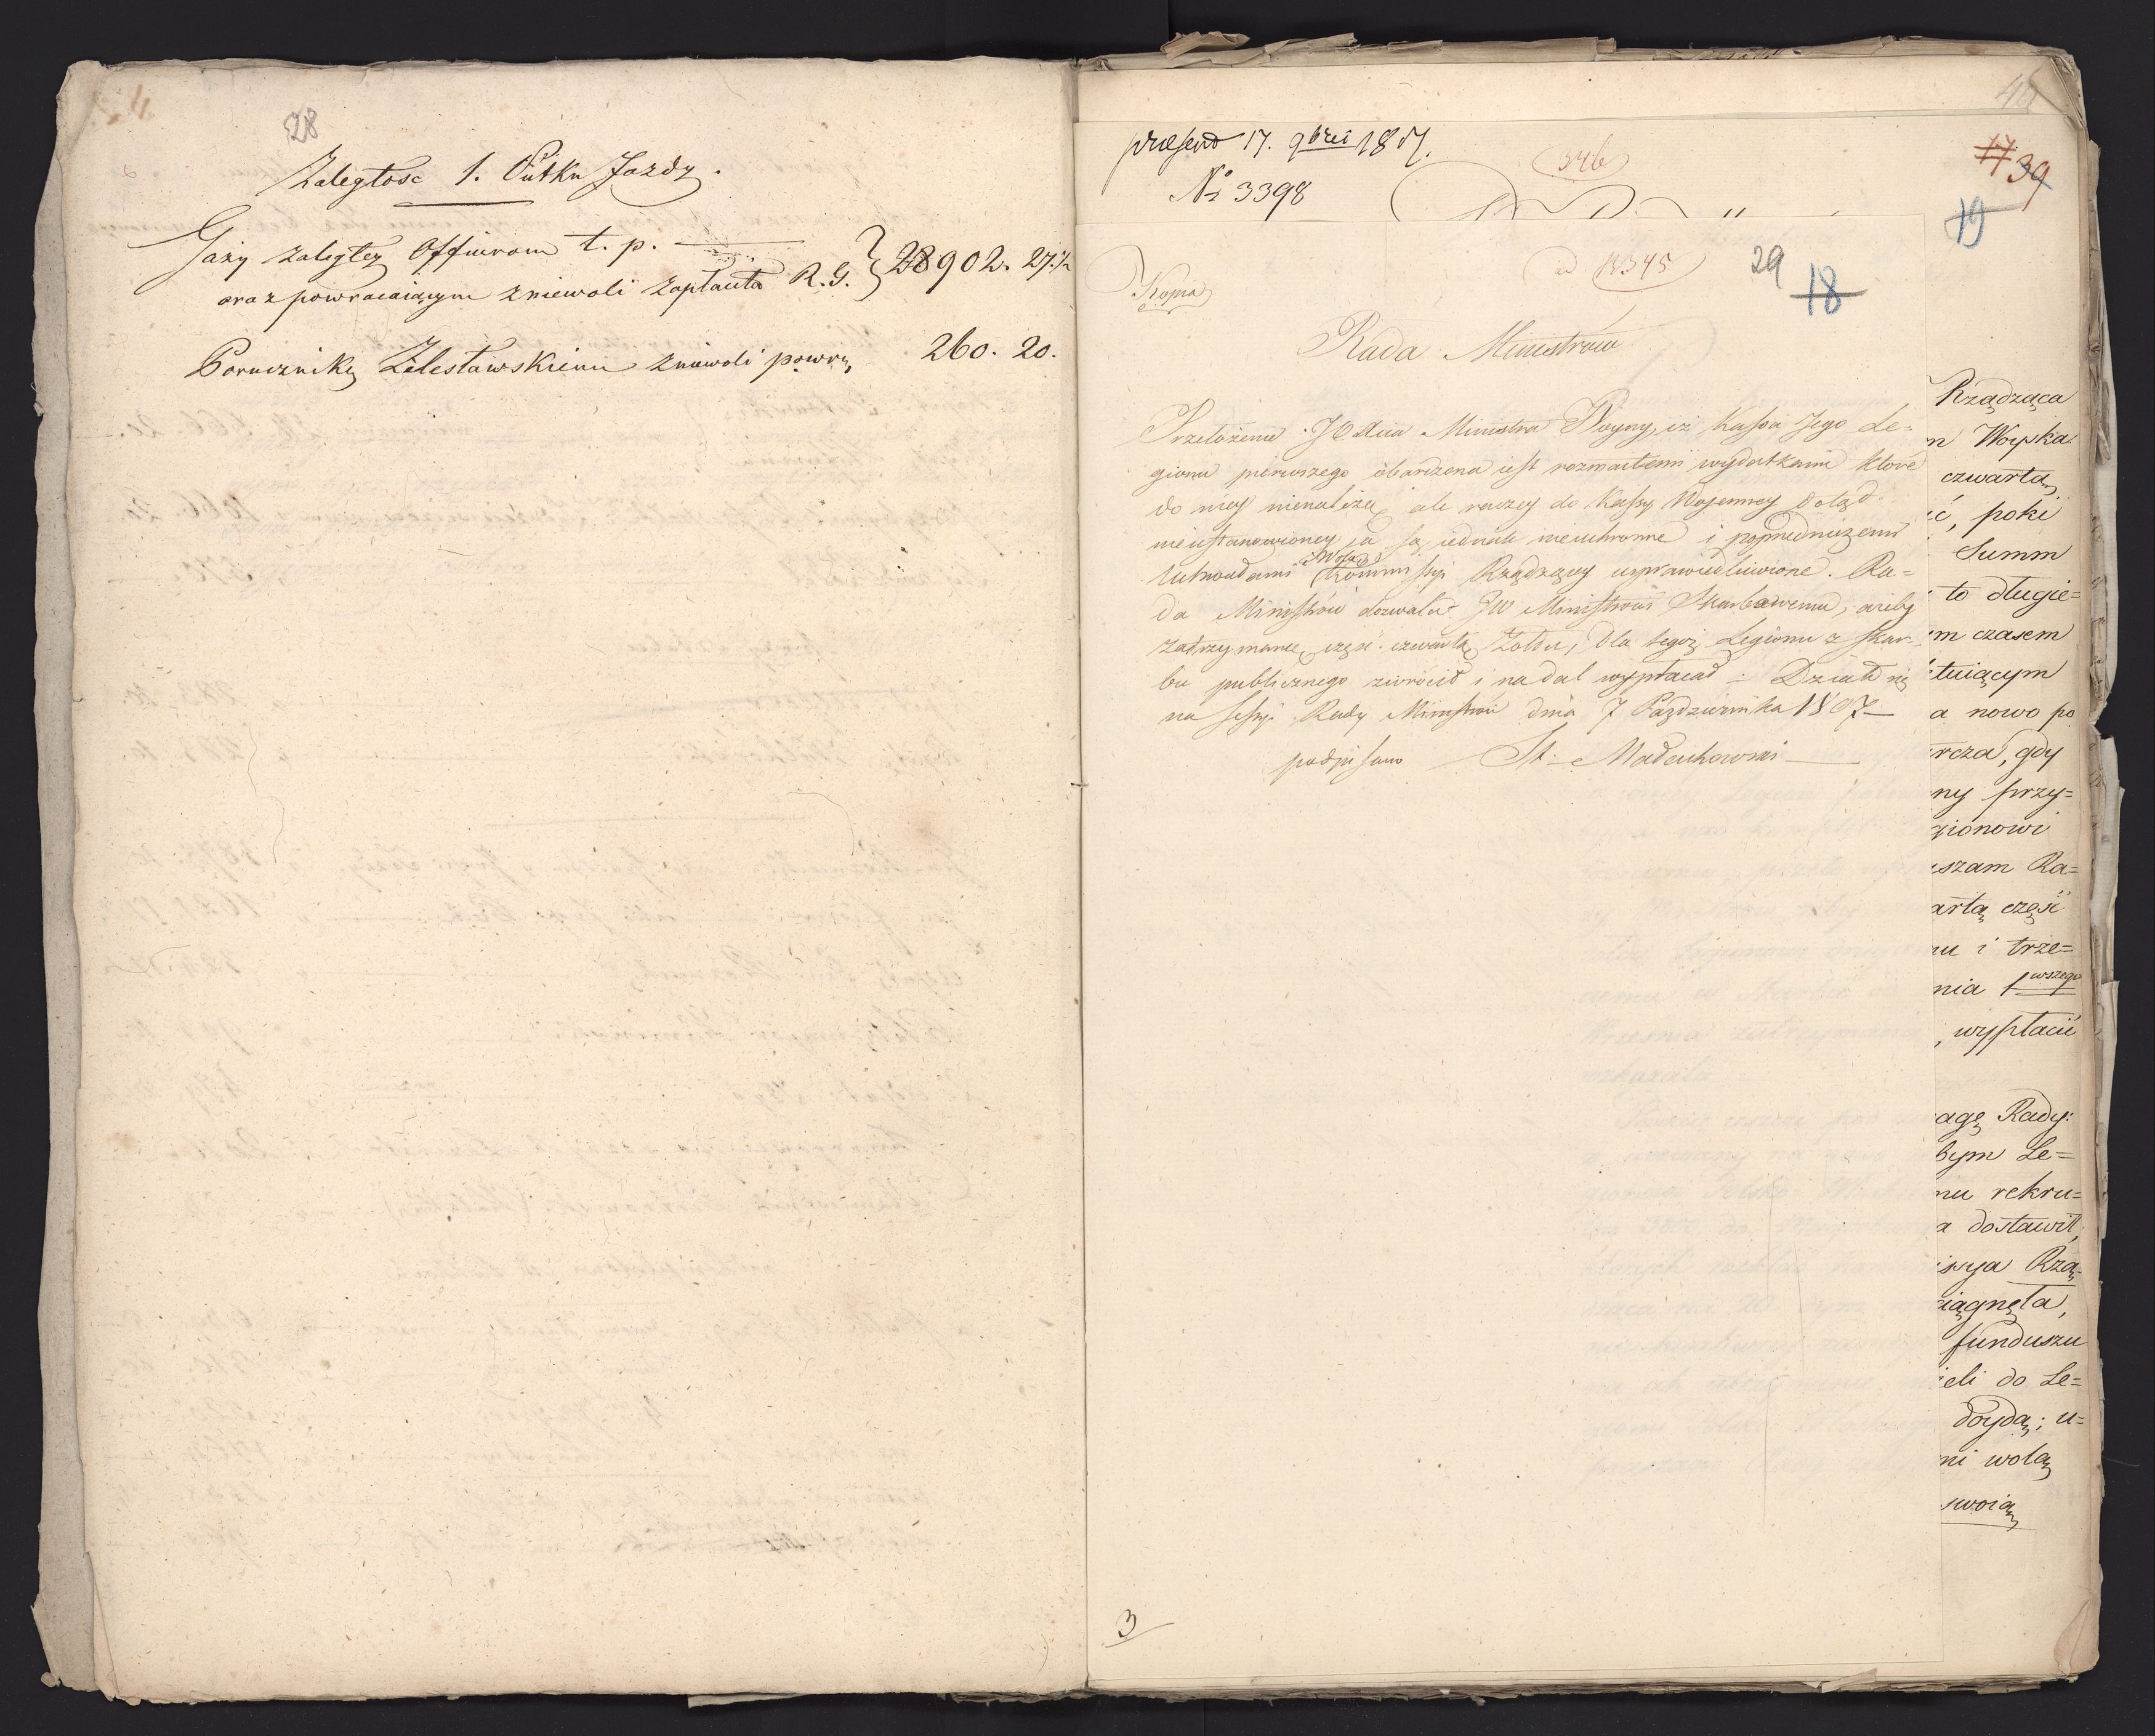 28
Zaległosc 1. Pułku Jazdy.
Gaży zaległey Officirom t. p.
oraz powracaiącym z niewoli zapłacita R. G. } 28902. 27.½
Porucznikę Zelesławskiemu z niewoli powra, 260. 20.
46
præsent 17. 9brei 1807.
No 3398
346
17 39
19
ad 18345
29
18
Kopia
Rada Ministrów
Przełożenie JO Xcia Ministra Woyny, iż Kassa Jego Le=
gionu pierwszego obarczona iest rozmaitemi wydatkami które
do niey nienależą, ale raczey do Kassy Wojenney dotąd
nieustanowioney, a są iednak nieuchronne i poprzedniczemi
Uchwałami Kommissyi Rządzącey usprawiedliwione. Ra=
da Ministrów dozwala JW Ministrowi Skarbowemu, ażeby
zatrzymaną część czwartą żołdu, dla tegoż Legionu z Skar=
bu publicznego zwrócił i nadal wypłacał. Działo się
na Sessyi Rady Ministrów dnia 7 Pazdziernika 1807
podpisano St: Małachowski
Rządząca
m Woyska
czwartą
ić, poki
Summ
to długie=
m czasem
tuiącym
a nowo po
rcza, gdy
ny przy=
gionowi
szam Ra=
artą część
nu i trze=
nia 1wszego
, wypłacić
agę Rady:
bym Le=
mu rekru=
a dostawił,
isya Rzą=
iągnęła,
funduszu
ieli do Le=
doydą; u=
ni wolą
swoią
3